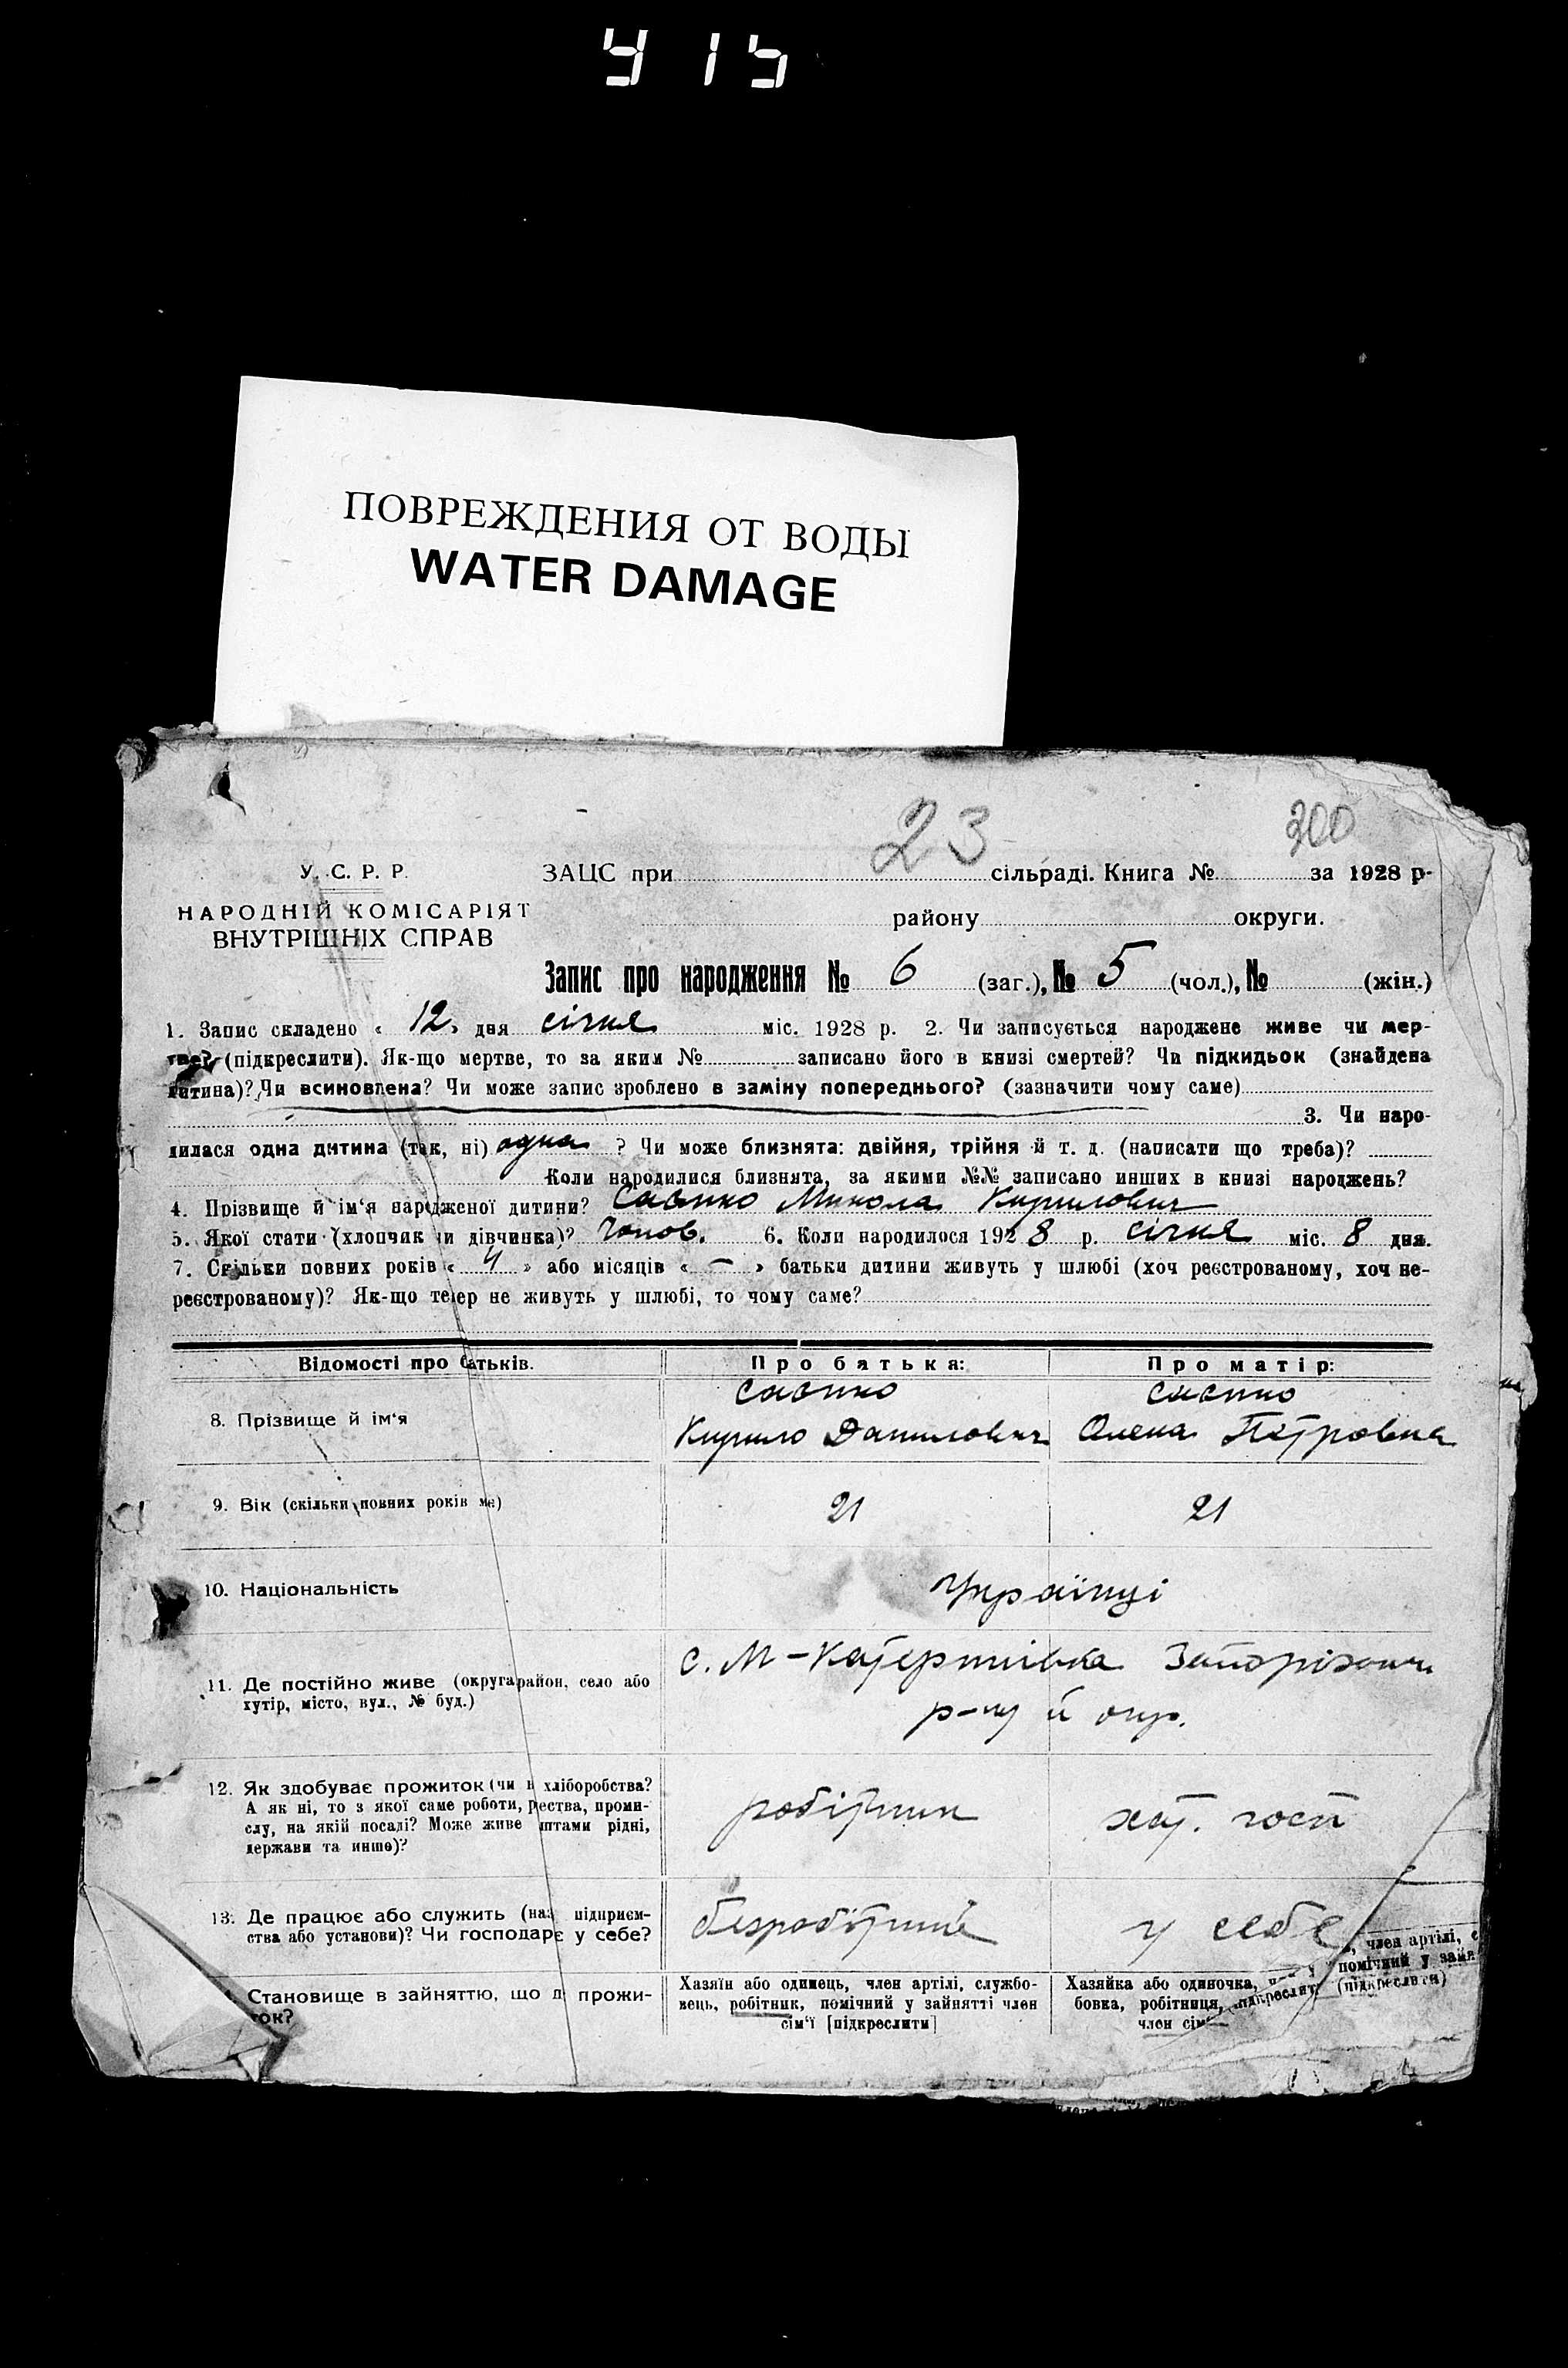 415
ПОВРЕЖДЕНИЯ ОТ ВОДЫ
WATER DAMAGE
23 200
У. С. Р. Р.
НАРОДНІЙ КОМІСАРІЯТ
ВНУТРІШНІХ СПРАВ
ЗАЦС при сільраді. Книга № за 1928 р-
району округи.
Запис про народження № 6 (заг.), № 5 (чол.), № (жін.)
1. Запис складено « 12 » дня січня міс. 1928 р. 2. Чи записується народжене живе чи мер-
тве? (підкреслити). Як-що мертве, то за яким № записано його в книзі смертей? Чи підкидьок (знайдена
дитина)? Чи всиновлена? Чи може запис зроблено в заміну попереднього? (зазначити чому саме)
3. Чи наро-
дилася одна дитина (так, ні) одна ? Чи може близнята: двійня, трійня й т. д. (написати що треба)?
Коли народилися близнята, за якими №№ записано инших в книзі народжень?
4. Прізвище й ім‘я народженої дитини? Микола Кирилович
5. Якої стати (хлопчик чи дівчинка)? чолов. 6. Коли народилося 1928 р. січня міс. 8 дня.
7. Скільки повних років « 4 » або місяців « — » батьки дитини живуть у шлюбі (хоч реєстрованому, хоч не-
реєстрованому)? Як-що тепер не живуть у шлюбі, то чому саме?
Відомості про батьків. Про батька: Про матір:
8. Прізвище й ім‘я
Кирило Данилович Олена Петровна
9. Вік (скільки повних років має) 21 21
10. Національність Українці
11. Де постійно живе (округа район, село або
хутір, місто, вул., № буд.)
с. М-Катеринівка
р-ну й окр.
12. Як здобуває прожиток (чи з хліборобства?
А як ні, то з якої саме роботи, ремества, проми-
слу, на якій посаді? Може живе коштами рідні,
держави та инше)?
робітник хат. госп
13. Де працює або служить (назва підприєм-
ства або установи)? Чи господарє у себе?
безробітний у себе
Становище в зайняттю, що дає прожи-
ток?
Хазяїн або одинець, член артілі, службо-
вець, робітник, помічний у зайнятті член
сім‘ї [підкреслити]
Хазяйка або одиночка,
бовка, робітниця,
член сім‘ї
член артілі,
помічний у
(підкреслити)